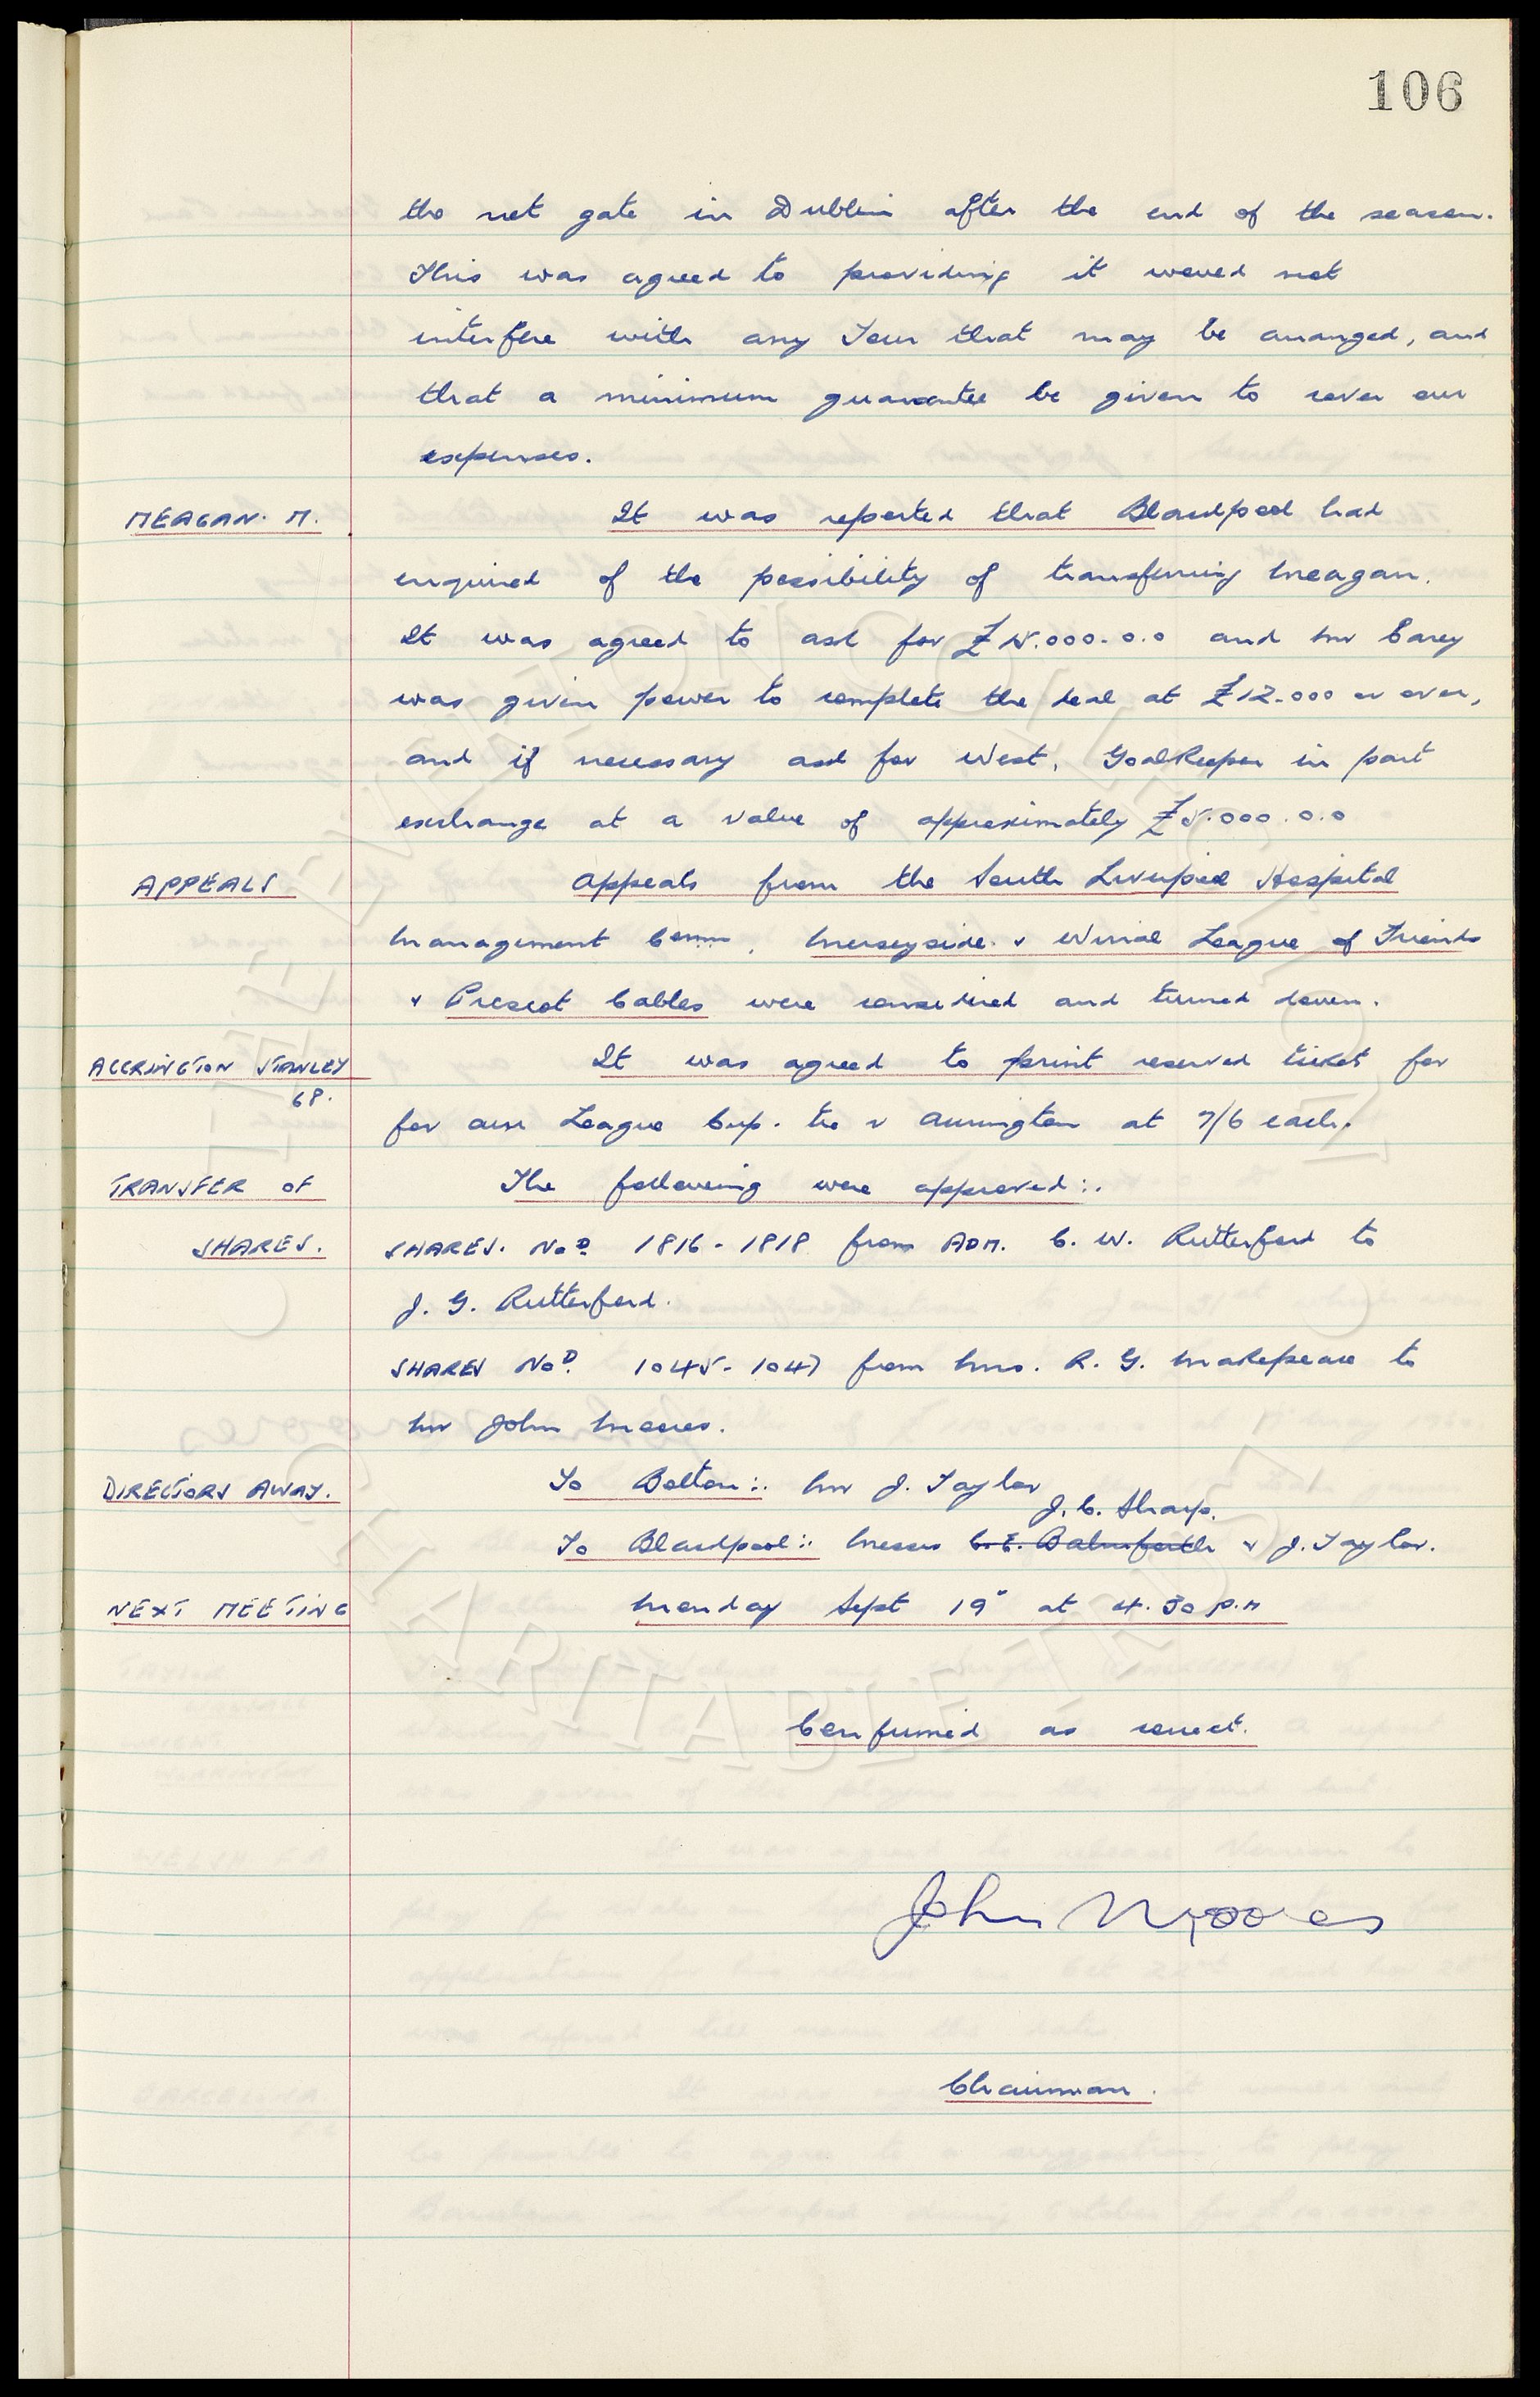 106
the net gate in Dublin after the end of the season.
This was agreed to providing it woued not
interfere with any Tour that may be arranged, and
that a minimum guarantee be given to cover our
expenses.
MEAGAN. M. It was reported that Blackpool had
enquired of the possibility of transferring Meagan.
It was agreed to ask for £15.000.0.0 and Mr Carey
was given power to complete the deal at £12.000 or over,
and if necessary ask for West, Goalkeeper in part
exchange at a value of approximately £5.000.0.0
APPEALS Appeals from the South Liverpool Hospital
Management Comm, Merseyside & Wirral League of Friends
& Prescot Cables were considered and turned down.
ACCRINGTON STANLEY It was agreed to print reserved ticket for
68.
for our League Cup. tie v Accrington at 7/6 each.
TRANSFER OF The following were approved:.
SHARES. SHARES. Nod 1816-1818 from ADM. C. W. Rutterford to
J. G. Rutterford.
SHARES Nod. 1045-1047 from Mrs. R. G. Makepeace to
Mr John Moores.
DIRECTORS AWAY. To Bolton:. Mr J. Taylor
J. C. Sharp.
To Blackpool:. Messrs C. E. Balmforth & J. Taylor.
NEXT MEETING Monday Sept 19" at 4.30 P.M
Confirmed as correct.
John Moores
Chairman.